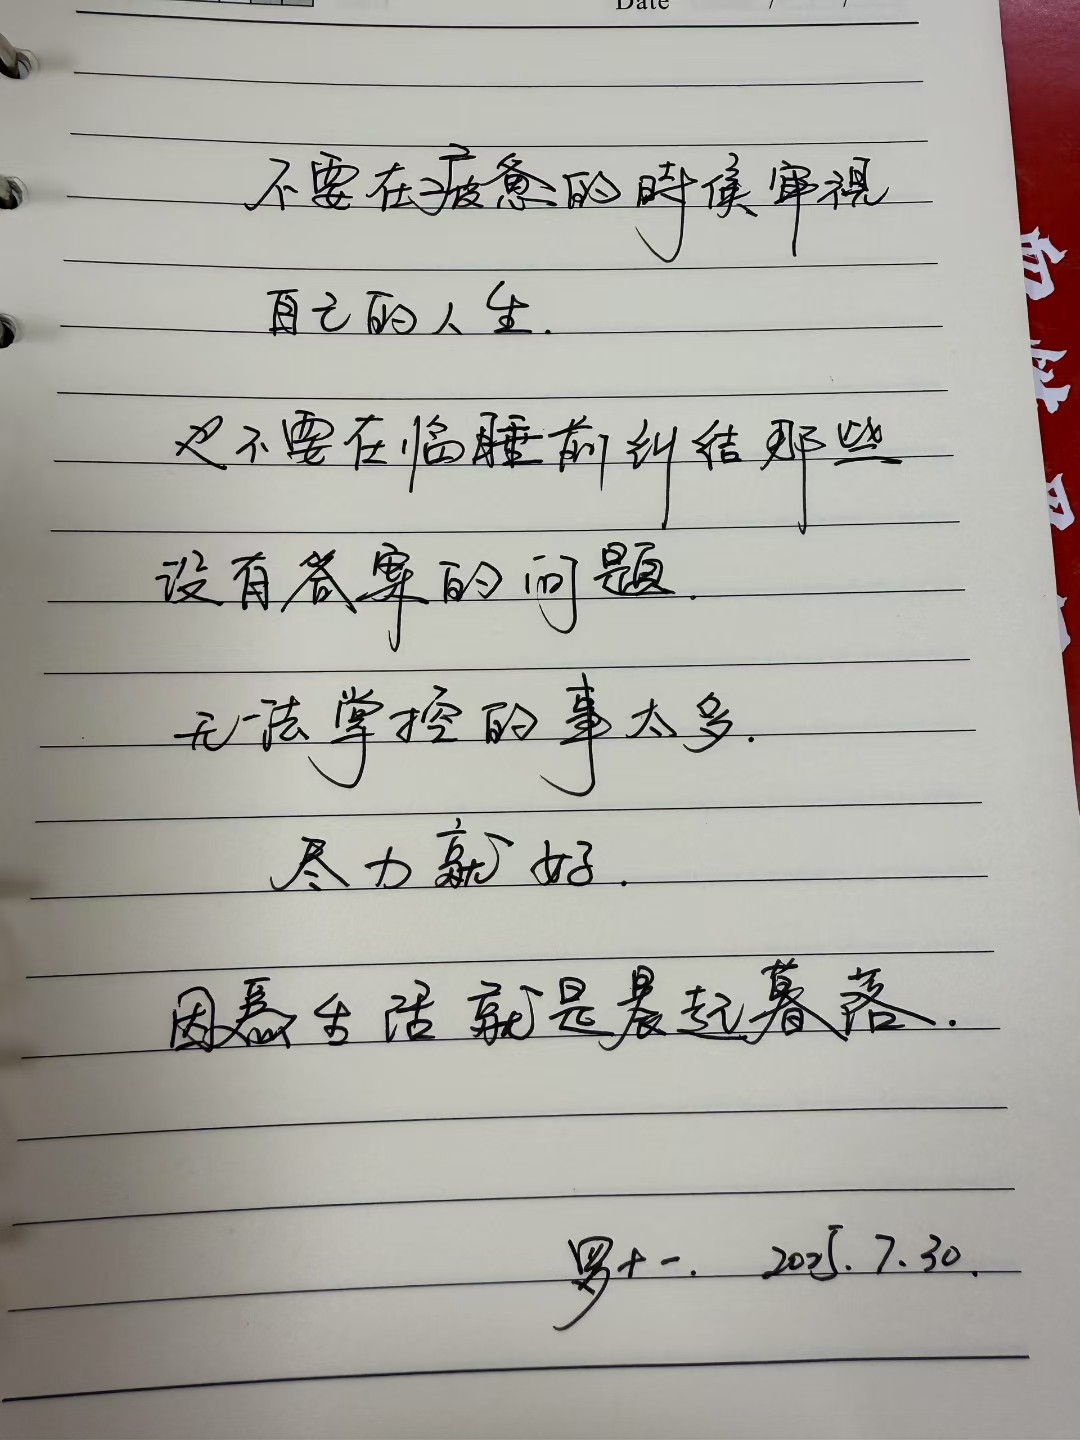 Date / /
不要在疲惫的時候审視
自己的人生.
也不要在临睡前纠结那些
没有答案的问题.
无法掌控的事太多.
尽力就好.
因為生活就是晨起暮落.
男十一. 2025.7.30.